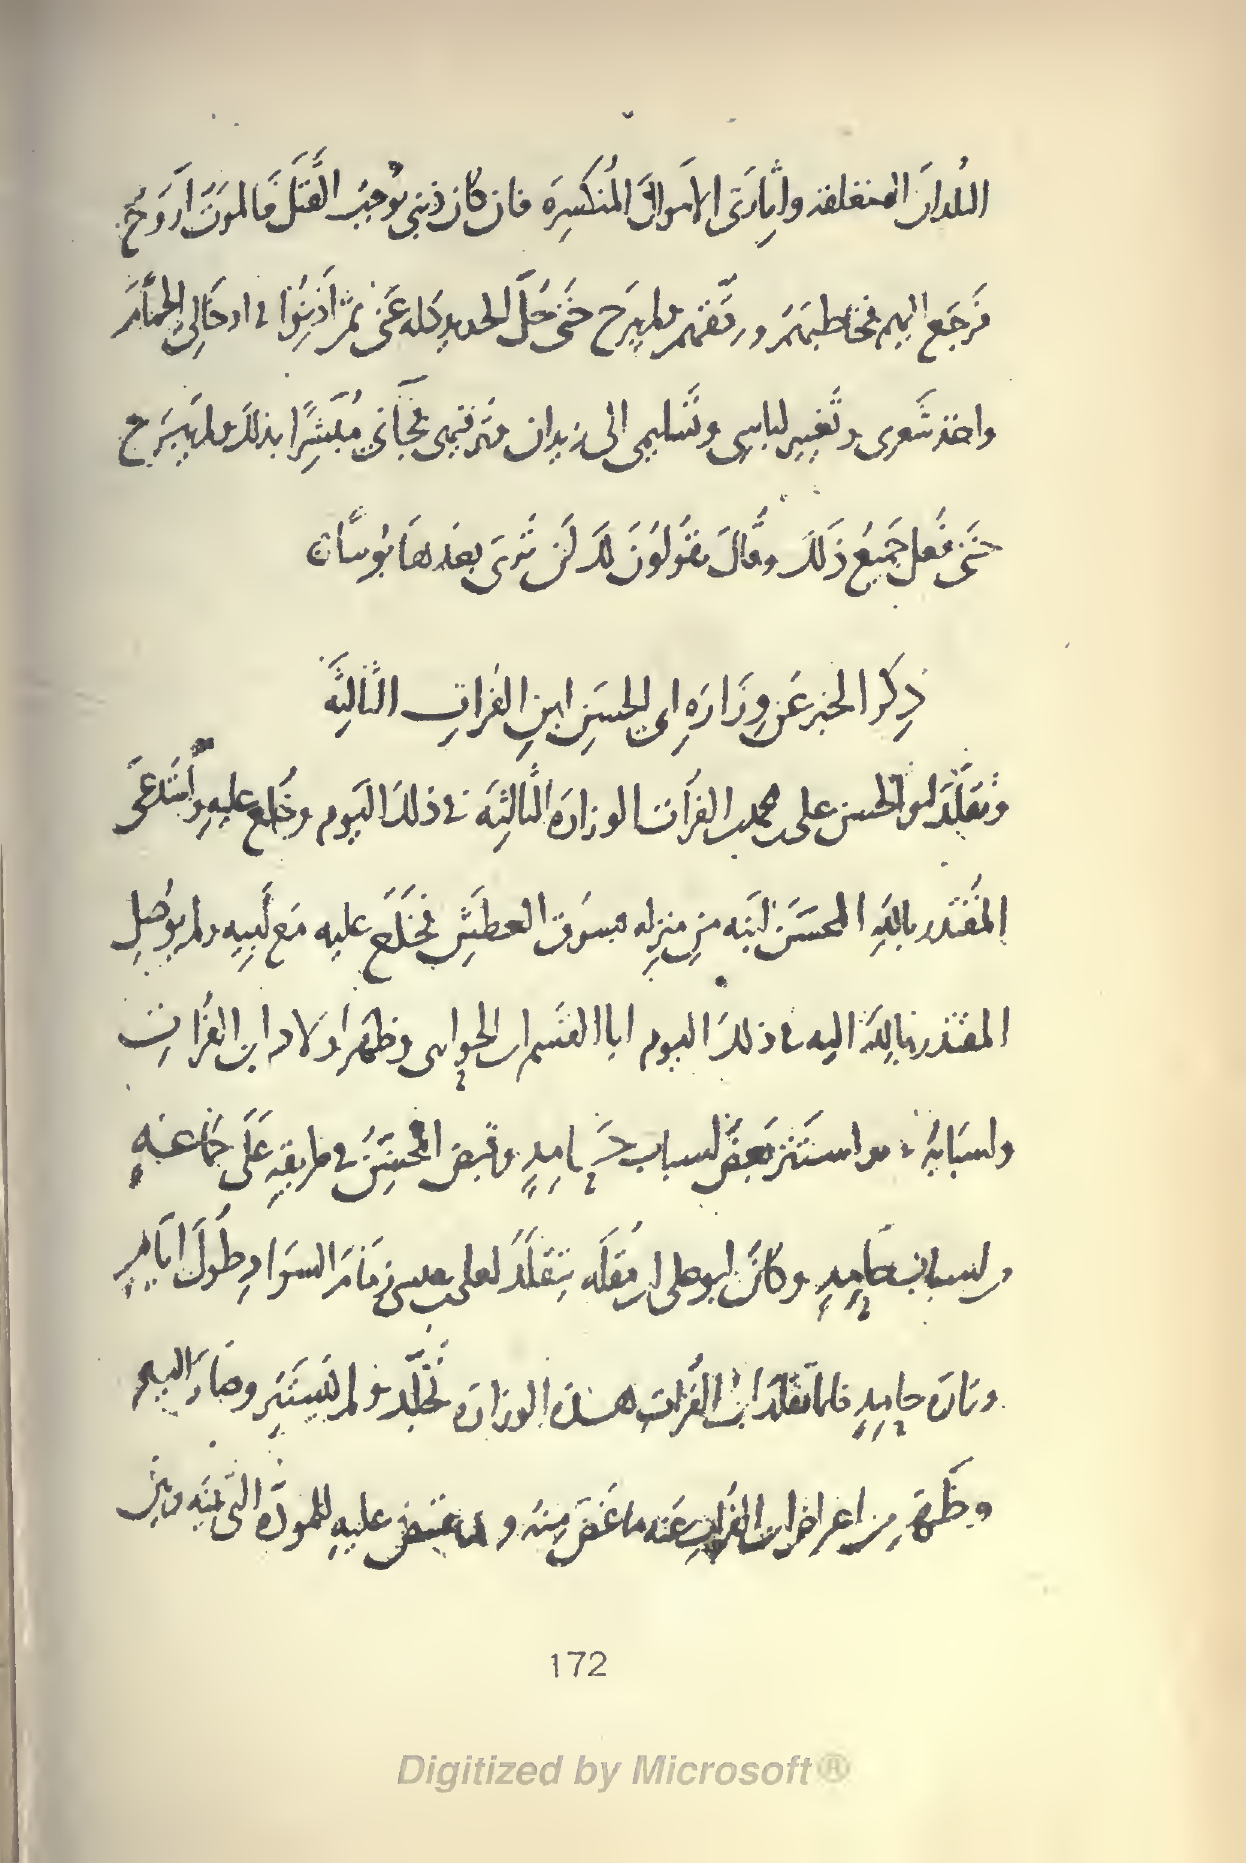 البلدان المنغلقة واثارتى الاموال المنكسره فان كان ذنبى يوجب القتل فالموت اروح
فرجع اليهم فخاطبهم ورققهم ولم يبرح حتى حل الحديد كله عنى ثم اذنوا فى ادخالى الحمام
واخذ شعرى وتغيير لباسى وتسليمى الى زيدان ثم فجآنى مبشرا بذلك ولم يبرح
حتى فعل جميع ذلك وقال يقولون لك لن ترى بعدها بوسا
ذكر الخبر عن وزاره ابى الحسن ابن الفرات الثالثه
وتقلد ابو الحسن على بن محمد بن الفرات الوزاره الثالثه فى ذلك اليوم وخلع عليه واستدعى
المقتدر بالله المحسن ابنه من منزله بسوق العطش فخلع عليه مع ابيه ولم يوصل
المقتدر بالله اليه فى ذلك اليوم ابا القسم ابن الحوارى وظهر اولاد ابن الفرات
واسبابه واستتر بعض اسباب حامد وقبض المحسن فى طريقه على جماعه
من اسباب حامد وكان ابو على ابن مقله يتقلد لعلى بن عيسى زمام السواد طول ايام
وزاره حامد فلما تقلد ابن الفرات هذه الوزاره تجلد ولم يستتر وصار اليه
وظهر من اعراض ابن الفرات عنه ما غض منه و عليه للموده التى بينه وبين
172
Digitized by Microsoft®